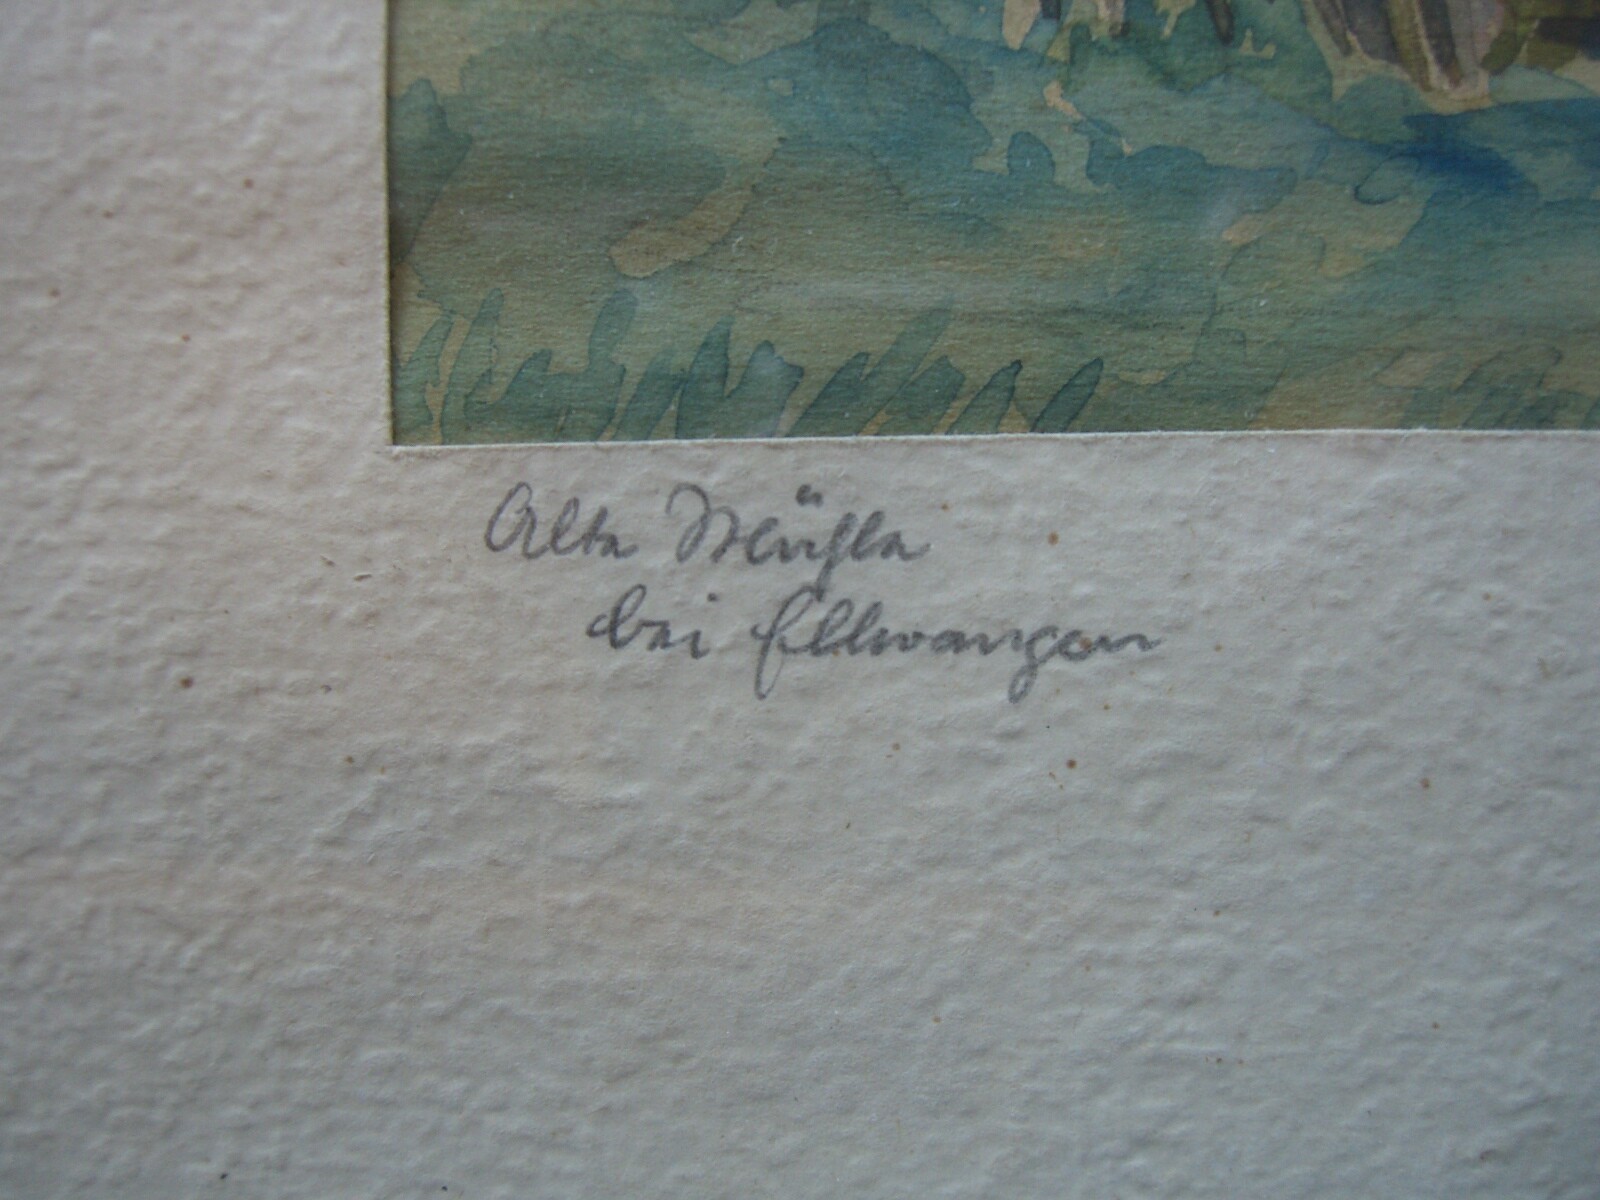 Alte Mühle
bei Ellwangen